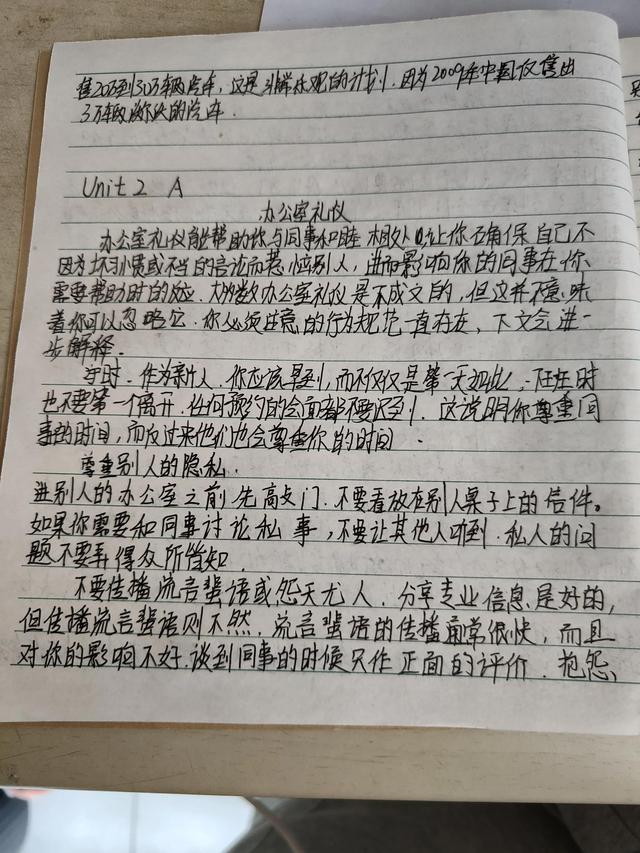 售20万到30万辆汽车,这是引解乐观的计划.因为2009年中国仅售出
3万辆的汽车.
Unit 2 A
办公室礼仪
办公室礼仪能帮助你与同事和睦相处,让你确保自己不
因为坏习惯或不当的言论而惹恼别人,进而影响你的同事在你
需要帮助时的反应.大多数办公室礼仪是不成文的,但这并不意味
着你可以忽略它.你必须注意的行为规范一直存在,下文会进一
步解释.
守时.作为新人.你应该早到,而不仅仅是第一天如此.下班时
也不要第一个离开.任何预约的会面都不要迟到.这说明你尊重同
事的时间,而反过来他们也会尊重你的时间.
尊重别人的隐私.
进别人的办公室之前先敲门.不要看放在别人桌子上的信件。
如果你需要和同事讨论私事,不要让其他人听到.私人的问
题不要弄得众所皆知.
不要传播流言蜚语或怨天尤人.分享专业信息是好的,
但传播流言蜚语则不然.流言蜚语的传播通常很快,而且
对你的影响不好.谈到同事的时候只作正面的评价.抱怨、